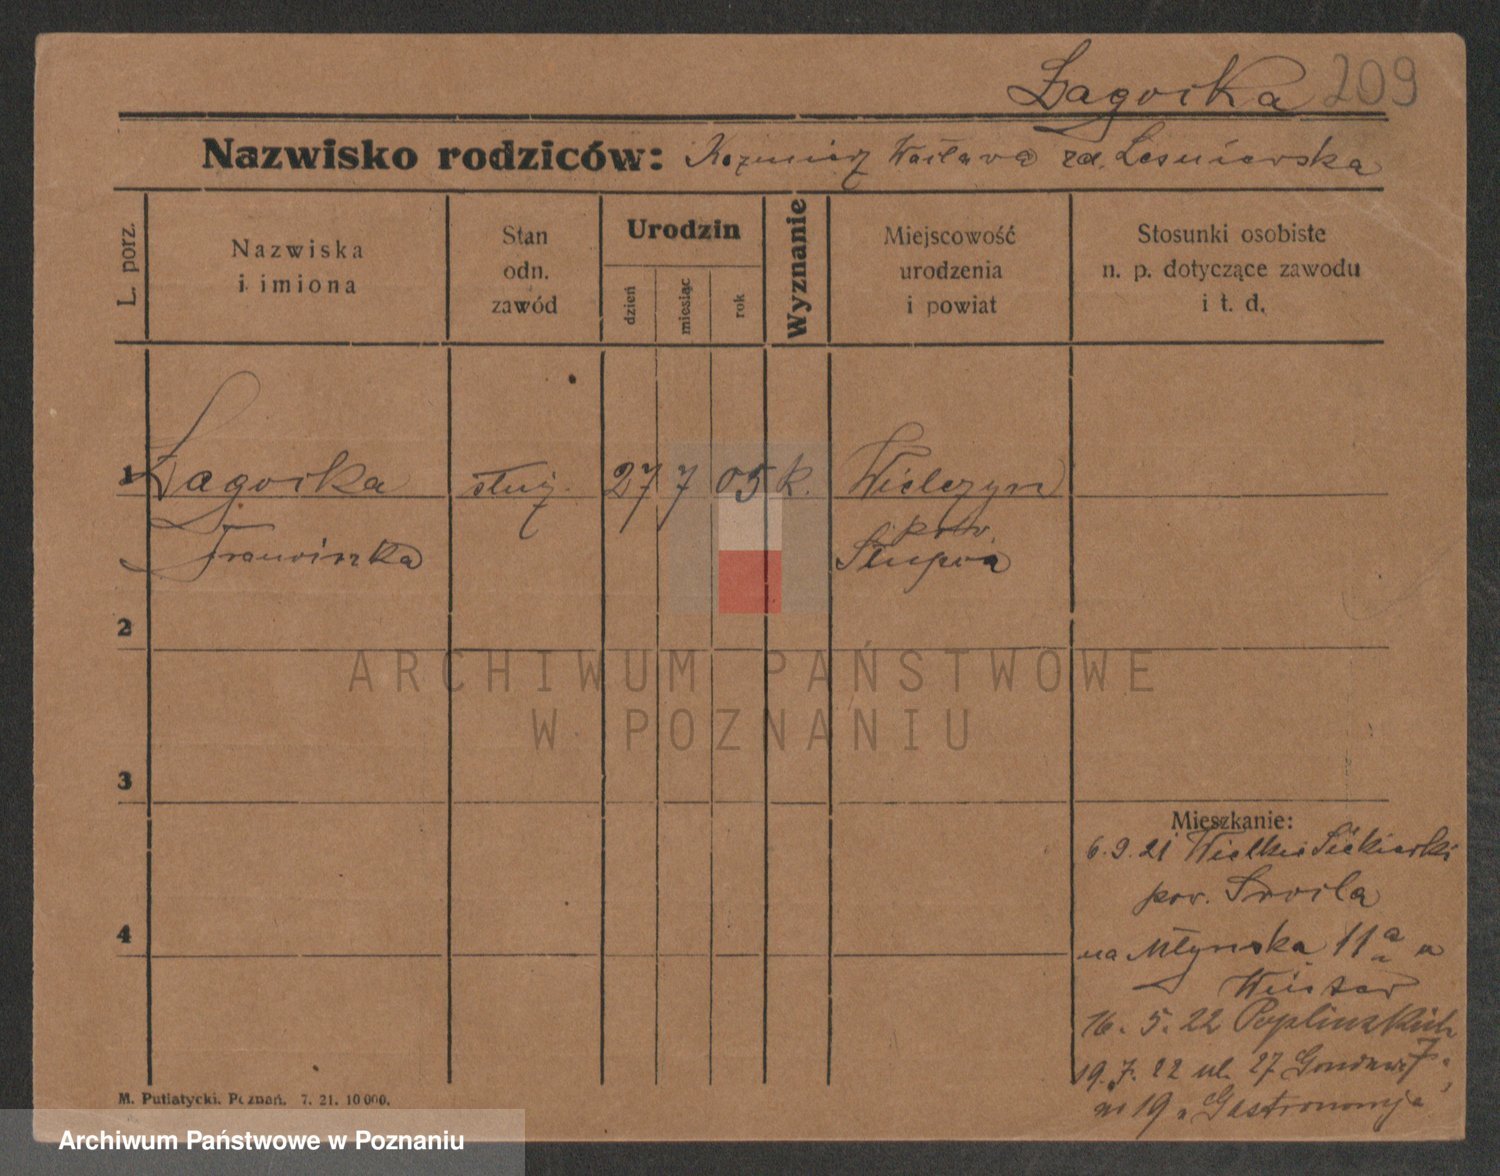 Łagocka 209
Nazwisko rodziców: Kazimierz Wacława zd. Leśniewska
L. porz.
Nazwiska
i imiona
Stan
odn.
zawód
Urodzin
dzień
miesiąc
rok
Wyznanie
Miejscowość
urodzenia
i powiat
Stosunki osobiste
n. p. dotyczące zawodu
i t. d.
1 służ. 27 7 05 k.
pow.
Słupca
2
ARCHIWUM PAŃSTWOWE
W POZNANIU
3
Mieszkanie:
6.9.21 Wielkie
pow. Środa
4
na Młyńska 11a u
16. 5. 22 Poplińskich 7
19. 7. 22 ul. 27 Grudnia
nr 19 „Gastronomja”
M. Putiatycki. Poznań. 7. 21. 10000.
Archiwum Państwowe w Poznaniu